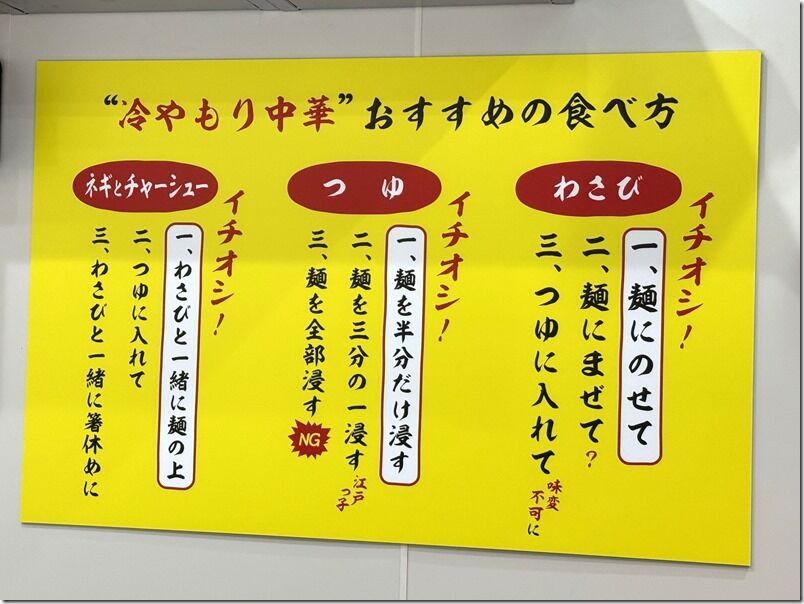 “冷やもり中華”おすすめの食べ方
わさび
イチオシ!
一、麺にのせて
二、麺にまぜて?
三、つゆに入れて
味変
不可に
つゆ
イチオシ!
一、麺を半分だけ浸す
二、麺を三分の一浸す
江戸
っ子
三、麺を全部浸す
NG
ネギとチャーシュー
イチオシ!
一、わさびと一緒に麺の上
二、つゆに入れて
三、わさびと一緒に箸休めに